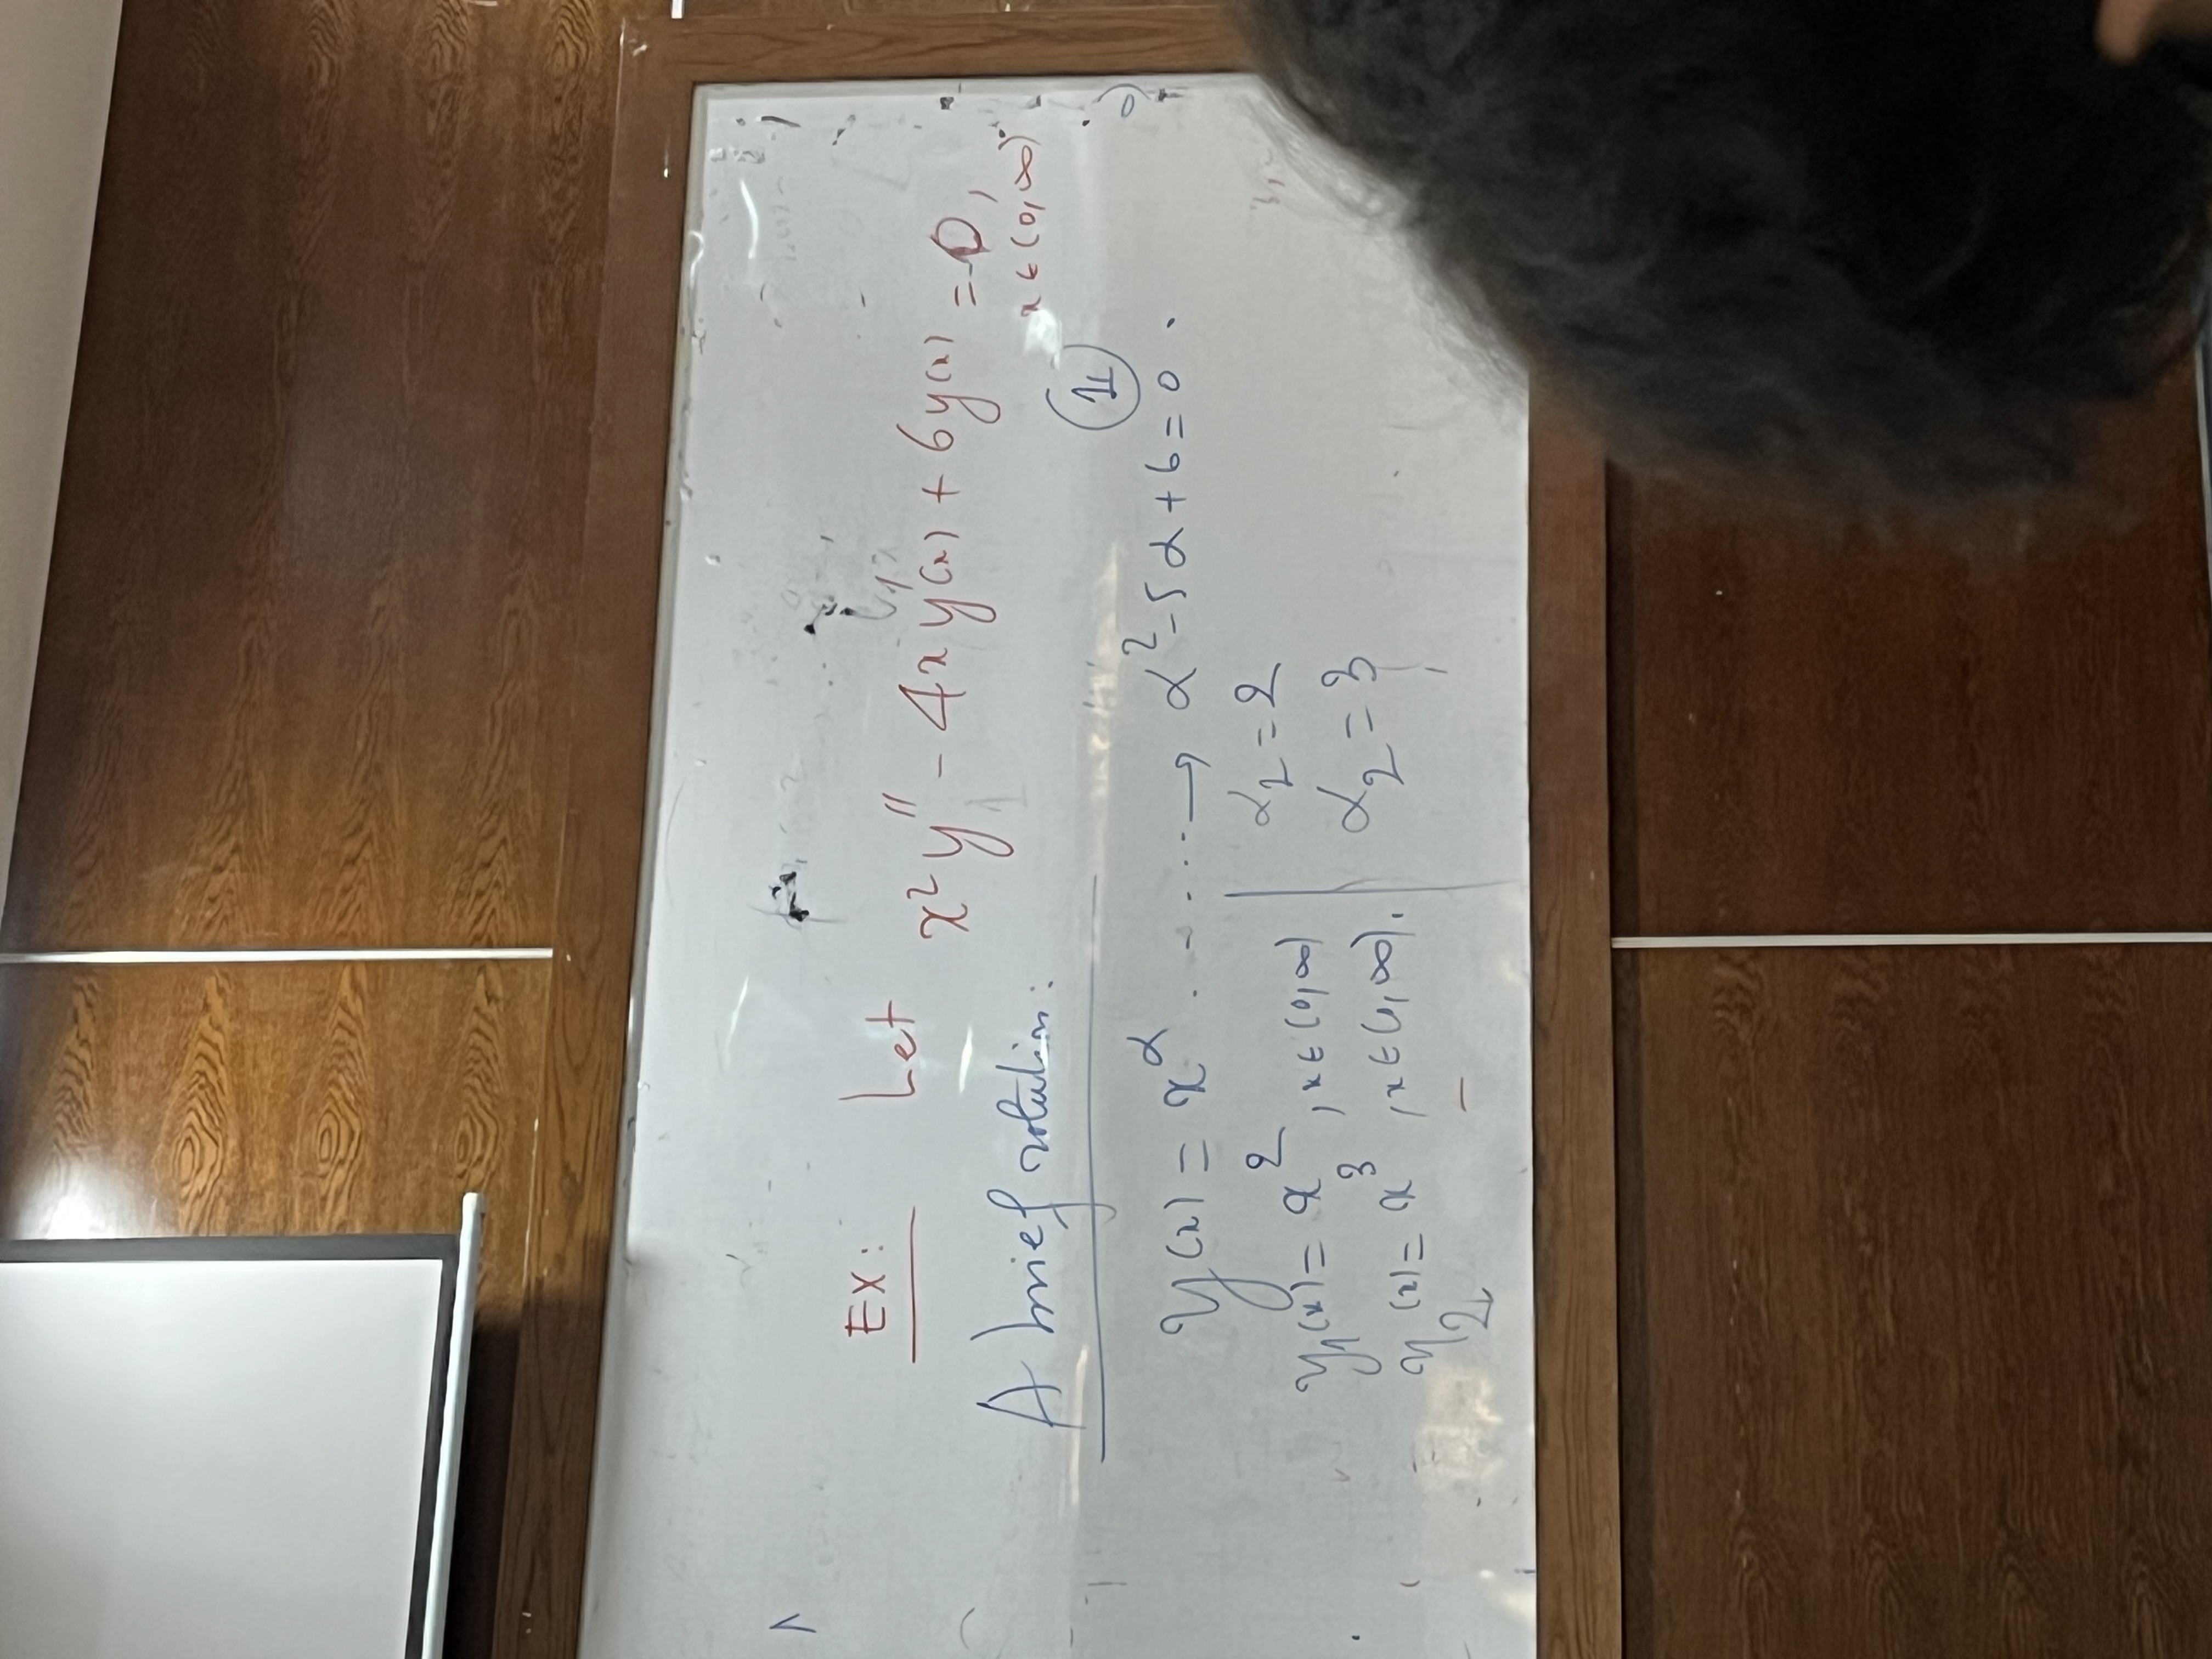 EX: Let x² y'' - 4x y'(x) + 6y(x) = 0,
x ∈ (0, ∞)
A brief solution:
1
y(x) = x^α . - - . . . → α² - 5α + 6 = 0 .
y₁(x) = x² , x ∈ (0, ∞) | α₂ = 2
y₂(x) = x³ , x ∈ (0, ∞). | α₂ = 3